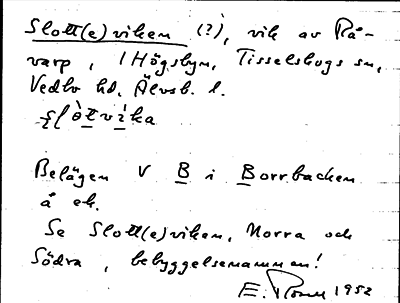 Slott(e)viken (?), vik av Rå-
varp, 1 Högsbyn, Tisselskogs sn,
Vedbo hd, Älvsb. l.
slòtvìka
Belägen V B i Borrbacken
å ek.
Se Slott(e)viken, Norra och
Södra, bebyggelsenamnen!
E. 1952